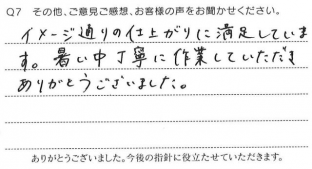 Q7 その他、ご意見ご感想、お客様の声をお聞かせください。
イメージ通りの仕上がりに満足していま
す。暑い中丁寧に作業していただき
ありがとうございました。
ありがとうございました。今後の指針に役立たせていただきます。